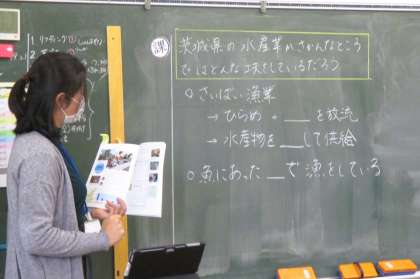 課
茨城県の水産業がさかんなところ
ではどんな工夫しているだろう
○さいばい漁業
→ ひらめ・___を放流
→ 水産物を___して供給
○魚にあった__で漁をしている